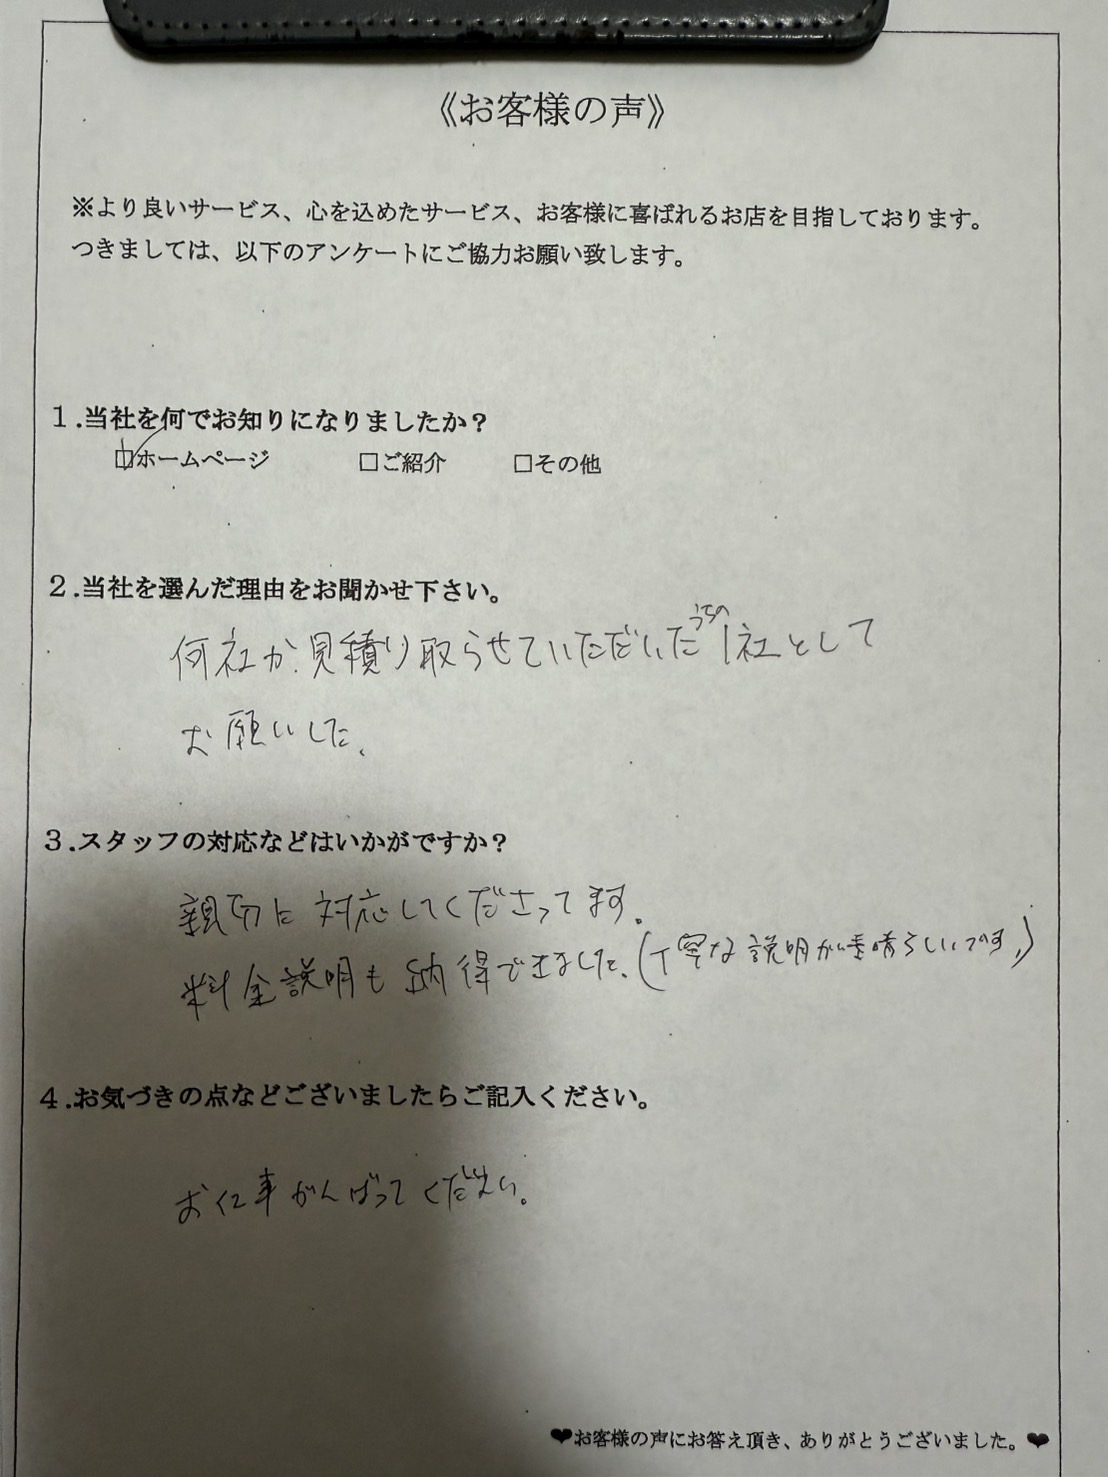 《お客様の声》
※より良いサービス、心を込めたサービス、お客様に喜ばれるお店を目指しております。
つきましては、以下のアンケートにご協力お願い致します。
1.当社を何でお知りになりましたか？
☑ホームページ □ご紹介 □その他
2.当社を選んだ理由をお聞かせ下さい。
何社か見積り取らせていただいたうちの1社として
お願いした。
3.スタッフの対応などはいかがですか？
親切に対応してくださってます。
料金説明も納得できました。(丁寧な説明が素晴らしいです。)
4.お気づきの点などございましたらご記入ください。
お仕事がんばってください。
❤お客様の声にお答え頂き、ありがとうございました。❤